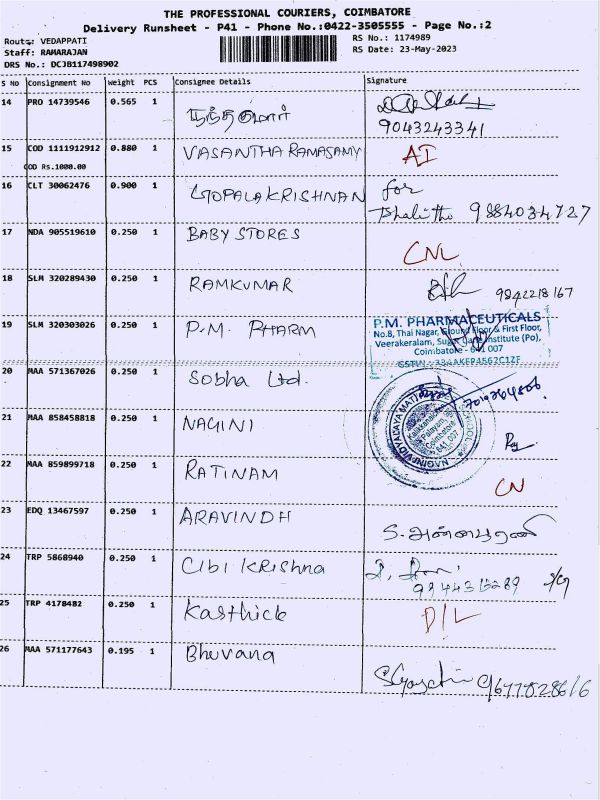 THE PROFESSIONAL COURIERS, COIMBATORE
Delivery Runsheet - P41 - Phone No.:0422-3505555 - Page No.:2
Route: VEDAPPATI
RS No.: 1174989
Staff: RAMARAJAN
RS Date: 23-May-2023
DRS No.: DCJB117498902
S No Consignment No Weight PCS Consignee Details Signature
14 PRO 14739546 0.565 1 நந்தகுமார்
9043243341
15 COD 1111912912 0.880 1 VASANTHA RAMASAMY AI
COD Rs.1000.00
16 CLT 30062476 0.900 1 GOPALAKRISHNAN for
9884034727
17 NDA 905519610 0.250 1 BABY STORES
CNL
18 SLM 320289430 0.250 1 RAMKUMAR 9842218167
19 SLM 320303026 0.250 1 P.M. PHARM
P.M. PHARMACEUTICALS
No.8, Thai Nagar, Ground Floor & First Floor,
Veerakeralam, Sugar Cane Institute (Po),
Coimbatore - 641 007
20 MAA 571367026 0.250 1 Sobha Ltd.
21 MAA 858458818 0.250 1 NAGINI
NAGINI VIDYALAYA MATRIC SCHOOL
Kalikkanaicken
Palayam,
Coimbatore
641 007
22 MAA 859899718 0.250 1 RATINAM
CN
23 EDQ 13467597 0.250 1 ARAVINDH
S. அன்னபூரணி
24 TRP 5868940 0.250 1 Cibi Krishna
25 TRP 4178482 0.250 1 Karthick D/L
26 MAA 571177643 0.195 1 Bhuvana
S Gayathri 9677828616